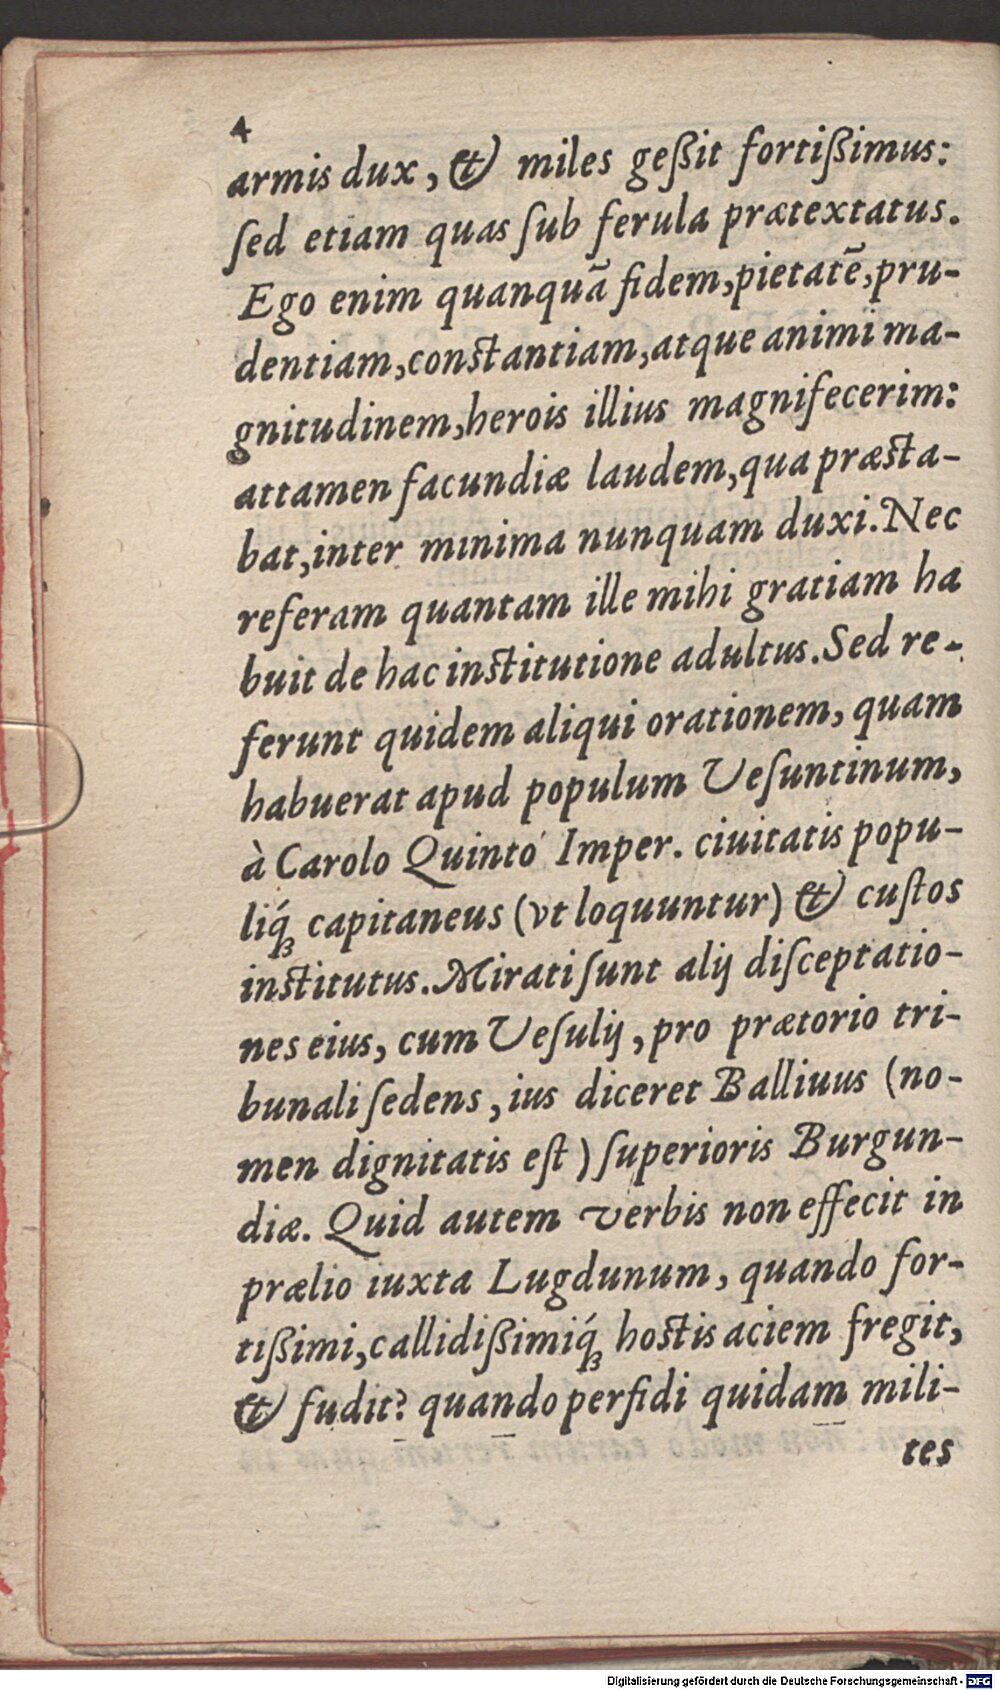 4
armis dux, & miles geßit fortißimus:
ſed etiam quas ſub ferula prætextatus.
Ego enim quanquã fidem, pietatẽ, pru-
dentiam, constantiam, atque animi ma-
gnitudinem, herois illius magnifecerim:
attamen facundiæ laudem, qua præsta-
bat, inter minima nunquam duxi. Nec
referam quantam ille mihi gratiam ha
buit de hac institutione adultus. Sed re-
ferunt quidem aliqui orationem, quam
habuerat apud populum Veſuntinum,
à Carolo Quinto Imper. ciuitatis popu-
liq́ꝫ capitaneus (vt loquuntur) & cuſtos
institutus. Mirati ſunt alij diſceptatio-
nes eius, cum Veſulij, pro prætorio tri-
bunali ſedens, ius diceret Balliuus (no-
men dignitatis eſt) ſuperioris Burgun-
diæ. Quid autem verbis non effecit in
prælio iuxta Lugdunum, quando for-
tißimi, callidißimiq́ꝫ hostis aciem fregit,
& fudit? quando perfidi quidam mili-
tes
Digitalisierung gefördert durch die Deutsche Forschungsgemeinschaft - DFG